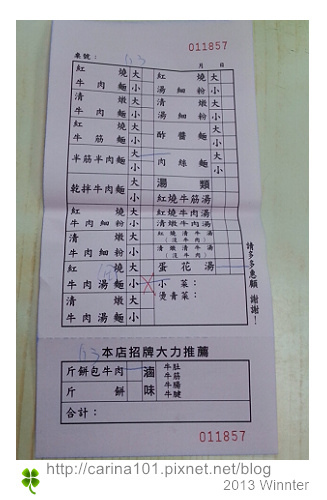 011857
桌號：63
月 日
紅燒牛肉麵 大 小
清燉牛肉麵 大 小
紅燒牛筋麵 大 小
半筋半肉麵 大 小
乾拌牛肉麵 大 小
紅燒牛肉細粉 大 小
清燉牛肉細粉 大 小
紅燒牛肉湯麵 大 小
清燉牛肉湯麵 大 小
紅燒湯細粉 大 小
清燉湯細粉 大 小
酢醬麵 大 小
肉絲麵 大 小
湯類
紅燒牛筋湯
紅燒牛肉湯
清燉牛肉湯
紅燒清牛湯
(沒牛肉)
清燉清牛湯
(沒牛肉)
蛋花湯
小菜：
燙青菜：
請多多惠顧 謝謝！
63
本店招牌大力推薦
斤餅包牛肉
斤餅
滷味
牛肚
牛筋
牛腸
牛腱
合計：
011857
http://carina101.pixnet.net/blog
2013 Winnter